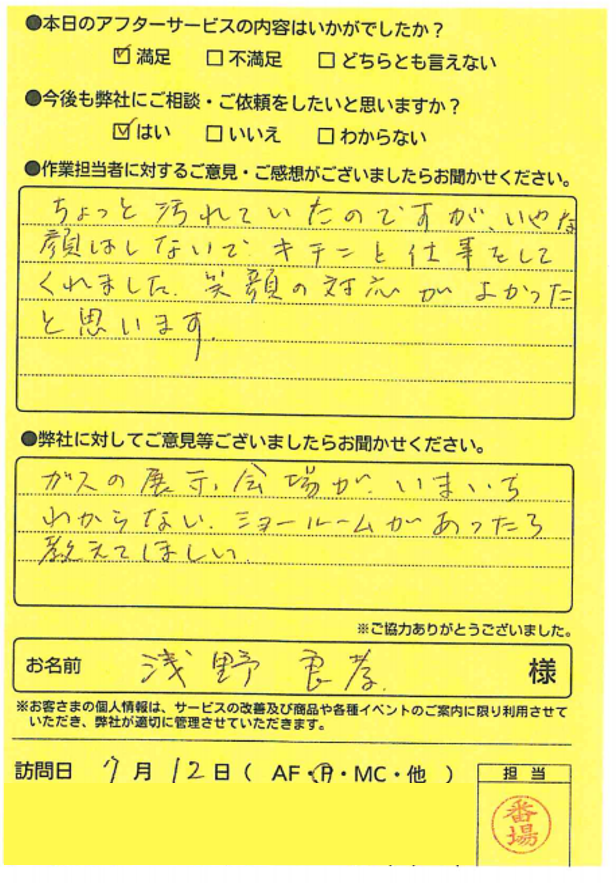 ●本日のアフターサービスの内容はいかがでしたか？
☑満足 □不満足 □どちらとも言えない
●今後も弊社にご相談・ご依頼をしたいと思いますか？
☑はい □いいえ □わからない
●作業担当者に対するご意見・ご感想がございましたらお聞かせください。
ちょっと汚れていたのですが、いやな
顔はしないで キチンと仕事をして
くれました。笑顔の対応がよかった
と思います。
●弊社に対してご意見等ございましたらお聞かせください。
ガスの展示会場が、いまいち
わからない。ショールームがあったら
教えてほしい。
※ご協力ありがとうございました。
お名前 浅野 良孝 様
※お客さまの個人情報は、サービスの改善及び商品や各種イベントのご案内に限り利用させて
いただき、弊社が適切に管理させていただきます。
訪問日 7月12日( AF・・MC・他 )
担当
番場